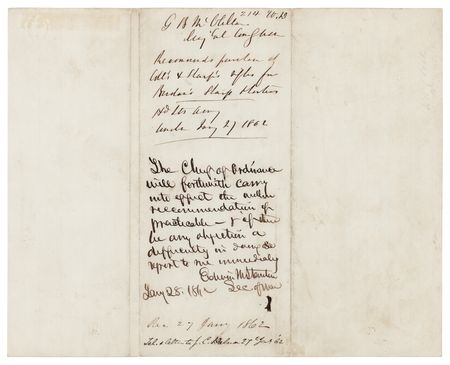 G B McClellan 214 W.D
Maj Genl Comg
Recommends purchase of
Colt's & Sharp's rifles for
Berdan's Sharp Shooters
Hd Qrs Army
under Jany 27 1862
The Chief of Ordnance
will forthwith carry
into effect the within
recommendation if
practicable — & if there
be any objection or
difficulty in doing so
report to me immediately
Edwin M Stanton
Jany 28. 1862 Sec of War
Rec 27 Jany 1862